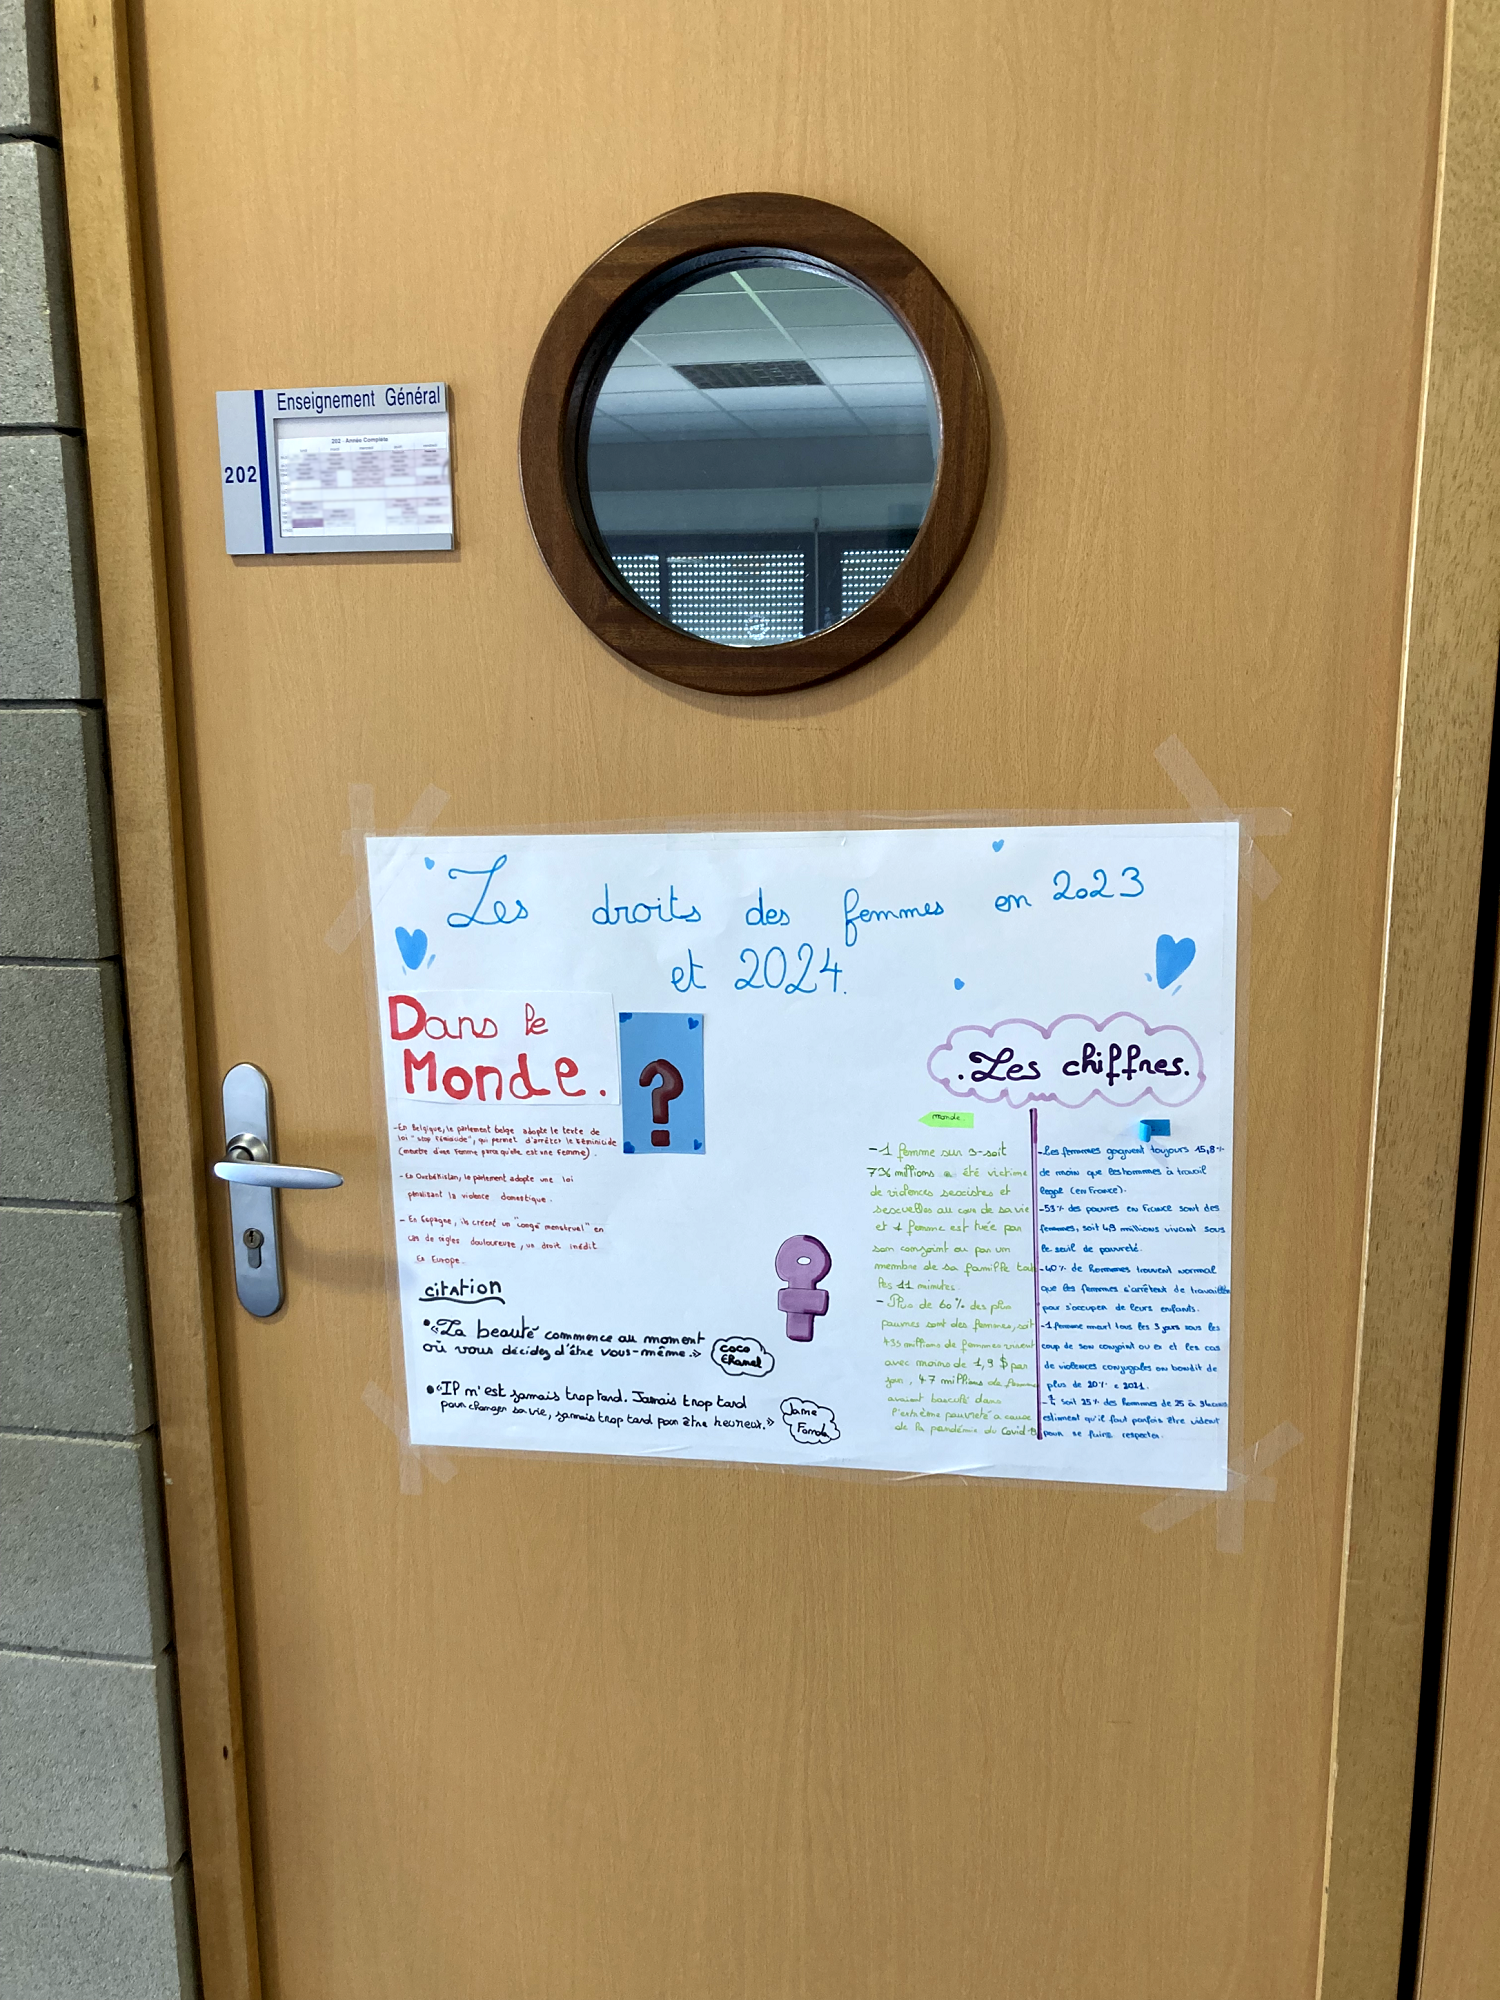 Enseignement Général
202
202 - Année Complète
Les droits des femmes en 2023
et 2024.
Dans le
Monde.
?
- En Belgique, le parlement belge adopte le texte de
loi "stop féminicide", qui permet d'arrêter le féminicide
(meurtre d'une femme parce qu'elle est une femme).
- En Ouzbékistan, le parlement adopte une loi
pénalisant la violence domestique.
- En Espagne, ils créent un "congé menstruel" en
cas de règles douloureuse, un droit inédit
En Europe.
citation
• «La beauté commence au moment
où vous décidez d'être vous-même.»
coco
Chanel
• «Il n'est jamais trop tard. Jamais trop tard
pour changer sa vie, jamais trop tard pour être heureux.»
Jane
Fonda
.Les chiffres.
monde.
- 1 femme sur 3 - soit
736 millions a été victime
de violences sexistes et
sexuelles au cour de sa vie
et 1 femme est tuée par
son conjoint ou par un
membre de sa famille tout
les 11 minutes.
- Plus de 60% des plus
pauvres sont des femmes, soit
435 millions de femmes vivent
avec moins de 1,9 $ par
jour, 47 millions de femmes
avaient basculé dans
l'extrême pauvreté a cause
de la pandémie du Covid-19
- Les femmes gagnent toujours 15,8%
de moin que les hommes à travail
égal (en France).
- 53% des pauvres en France sont des
femmes, soit 4,9 millions vivant sous
le seuil de pauvreté.
- 40% de hommes trouvent normal
que les femmes s'arrêtent de travailler
pour s'occuper de leurs enfants.
- 1 femme meurt tous les 3 jours sous les
coup de son conjoint ou ex et les cas
de violences conjugales on bondit de
plus de 20% e 2021.
soit 25% des hommes de 25 à 34 ans
estiment qu'il faut parfois être violent
pour se faire respecter.